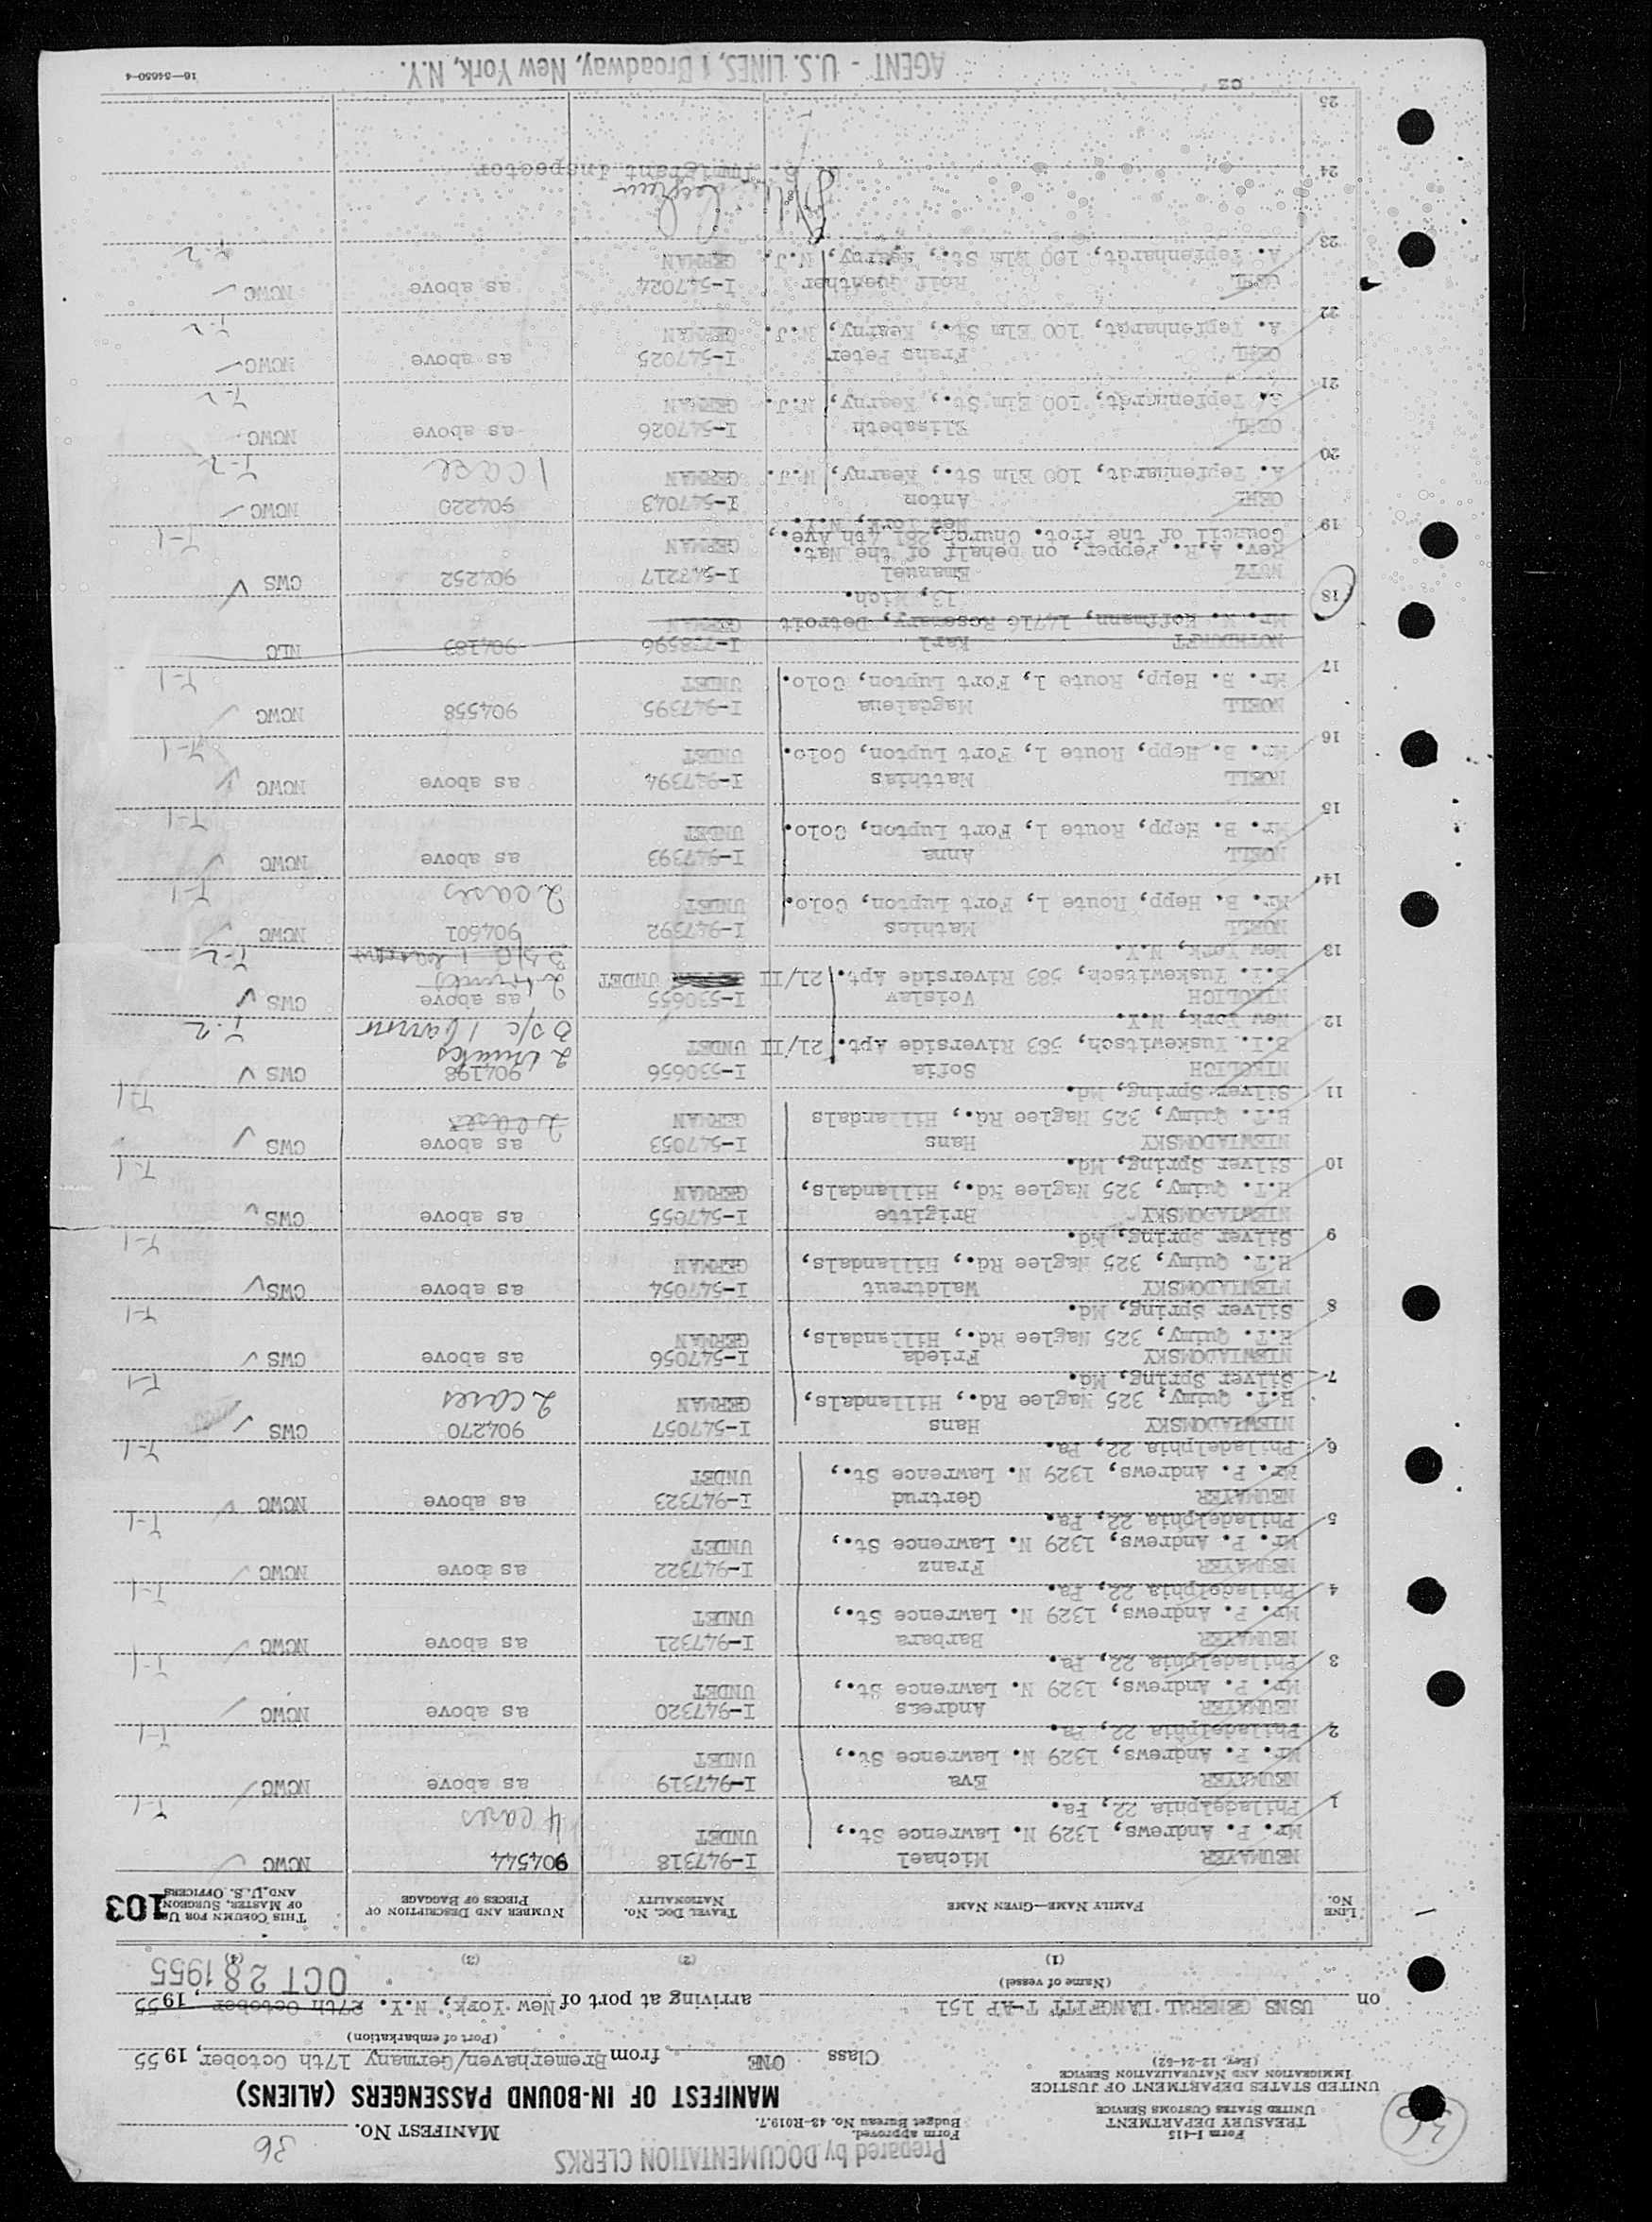 Prepared by DOCUMENTATION CLERKS
Form I-415
TREASURY DEPARTMENT
UNITED STATES CUSTOMS SERVICE
UNITED STATES DEPARTMENT OF JUSTICE
IMMIGRATION AND NATURALIZATION SERVICE
(Rev. 12-24-52)
Form approved.
Budget Bureau No. 43-R019.7.
MANIFEST NO. 36
MANIFEST OF IN-BOUND PASSENGERS (ALIENS)
Class ONE from Bremerhaven/Germany 17th October, 1955
(Port of embarkation)
on USNS GENERAL LANGFITT T-AP 151 arriving at port of New York, N.Y. 27th October, 1955
(Name of vessel)
OCT 28 1955
(1) (2) (3) (4)
LINE No. FAMILY NAME—GIVEN NAME TRAVEL DOC. NO. NATIONALITY NUMBER AND DESCRIPTION OF PIECES OF BAGGAGE THIS COLUMN FOR USE OF MASTER, SURGEON, AND U.S. OFFICERS
103
1 NEUMAYER Michael I-947318 904544 NCWC
Mr. P. Andrews, 1329 N. Lawrence St., UNDET 4 cases
Philadelphia 22, Pa. T-1
2 NEUMAYER Eva I-947319 as above NCWC
Mr. P. Andrews, 1329 N. Lawrence St., UNDET
Philadelphia 22, Pa. T-1
3 NEUMAYER Andreas I-947320 as above NCWC
Mr. P. Andrews, 1329 N. Lawrence St., UNDET
Philadelphia 22, Pa. T-1
4 NEUMAYER Barbara I-947321 as above NCWC
Mr. P. Andrews, 1329 N. Lawrence St., UNDET
Philadelphia 22, Pa. T-1
5 NEUMAYER Franz I-947322 as above NCWC
Mr. P. Andrews, 1329 N. Lawrence St., UNDET
Philadelphia 22, Pa. T-1
6 NEUMAYER Gertrud I-947323 as above NCWC
Mr. P. Andrews, 1329 N. Lawrence St., UNDET
Philadelphia 22, Pa. T-1
7 NIEWIADOMSKY Hans I-547057 904270 CWS
H.T. Quimy, 325 Naglee Rd., Hillandals, GERMAN 2 cases
Silver Spring, Md. T-1
8 NIEWIADOMSKY Frieda I-547056 as above CWS
H.T. Quimy, 325 Naglee Rd., Hillandals, GERMAN
Silver Spring, Md. T-1
9 NIEWIADOMSKY Waldtraut I-547054 as above CWS
H.T. Quimy, 325 Naglee Rd., Hillandals, GERMAN
Silver Spring, Md. T-1
10 NIEWIADOMSKY Brigitte I-547055 as above CWS
H.T. Quimy, 325 Naglee Rd., Hillandals, GERMAN
Silver Spring, Md. T-1
11 NIEWIADOMSKY Hans I-547053 as above CWS
H.T. Quimy, 325 Naglee Rd., Hillandals GERMAN 2 cases
Silver Spring, Md. T-1
12 NIKOLICH Sofia I-530656 904198 CWS
2 trunks
B.I. Yuskewitsch, 583 Riverside Apt. 21/II UNDET 3 s/c
New York, N.Y. T-2
13 NIKOLICH Voislav I-530655 as above CWS
B.I. Yuskewitsch, 583 Riverside Apt. 21/II UNDET 2 trunks
New York, N.Y. 3 s/c T-2
14 NOELL Mathias I-947392 904601 NCWC
Mr. B. Hepp, Route 1, Fort Lupton, Colo. UNDET 2 cases T-1
15 NOELL Anna I-947393 as above NCWC
Mr. B. Hepp, Route 1, Fort Lupton, Colo. UNDET T-1
16 NOELL Matthias I-947394 as above NCWC
Mr. B. Hepp, Route 1, Fort Lupton, Colo. UNDET T-1
17 NOELL Magdalena I-947395 904558 NCWC
Mr. B. Hepp, Route 1, Fort Lupton, Colo. UNDET T-1
18 NOTHDURFT Karl I-778596 904183 NLC
Mr. W. Hoffmann, 14716 Rosemary, Detroit GERMAN
13, Mich.
19 NUTZ Emanuel I-547217 904252 CWS
Rev. A.R. Pepper, on behalf of the Nat. GERMAN
Council of the Prot. Church, 281 4th Ave.,
New York, N.Y. T-1
20 OEHL Anton I-547043 904220 NCWC
A. Tepfenhardt, 100 Elm St., Kearny, N.J. GERMAN 1 case T-2
21 OEHL Elisabeth I-547026 as above NCWC
A. Tepfenhardt, 100 Elm St., Kearny, N.J. GERMAN T-2
22 OEHL Franz Peter I-547025 as above NCWC
A. Tepfenhardt, 100 Elm St., Kearny, N.J. GERMAN T-2
23 OEHL Rolf Guenther I-547024 as above NCWC
A. Tepfenhardt, 100 Elm St., Kearny, N.J. GERMAN T-2
24 Immigrant Inspector
25
AGENT - U.S. LINES, 1 Broadway, New York, N.Y.
16—54650-4